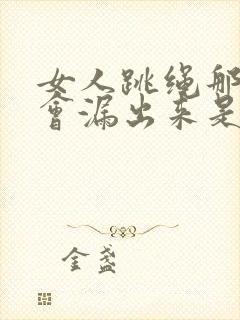 女人跳绳那
会漏出来是
金盏